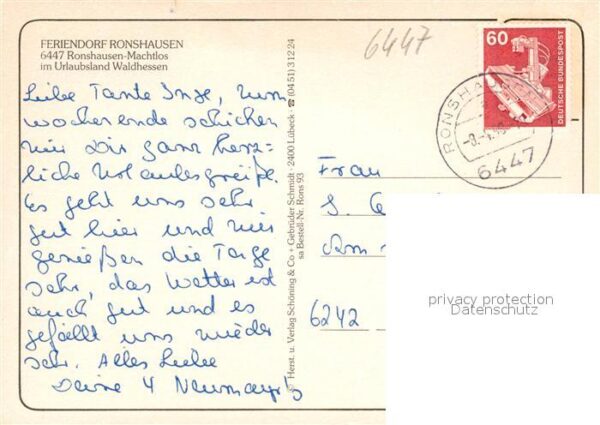 FERIENDORF RONSHAUSEN
6447 Ronshausen-Machtlos
im Urlaubsland Waldhessen
Liebe Tante Inge, zum
wochenende schicken
wir Dir ganz herz=
liche Urlaubsgrüße.
Es geht uns sehr
gut hier und wir
genießen die Tage
sehr, das Wetter ist
auch gut und es
gefällt uns wieder
sehr. Alles Liebe
Deine 4
Herst. u. Verlag Schöning & Co + Gebrüder Schmidt · 2400 Lübeck · ☎ (04 51) 3 12 24
sa Bestell-Nr. Rons 93
6447
60
DEUTSCHE BUNDESPOST
RONSHAUSEN
6447
Frau
6242
privacy protection
Datenschutz